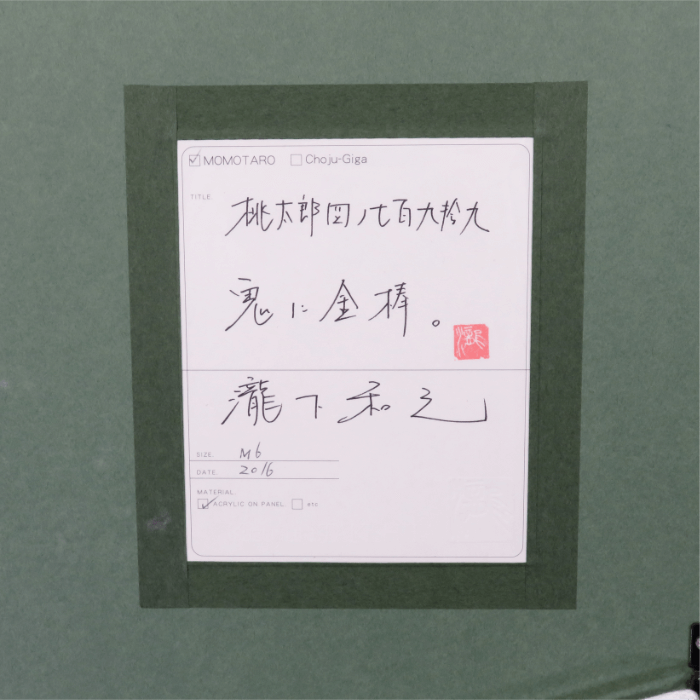 ☑ MOMOTARO ☐ Choju-Giga
TITLE
桃太郎図ノ七百九拾九
鬼に金棒。
瀧下和之
SIZE: M6
DATE: 2016
MATERIAL:
☑ ACRYLIC ON PANEL ☐ etc